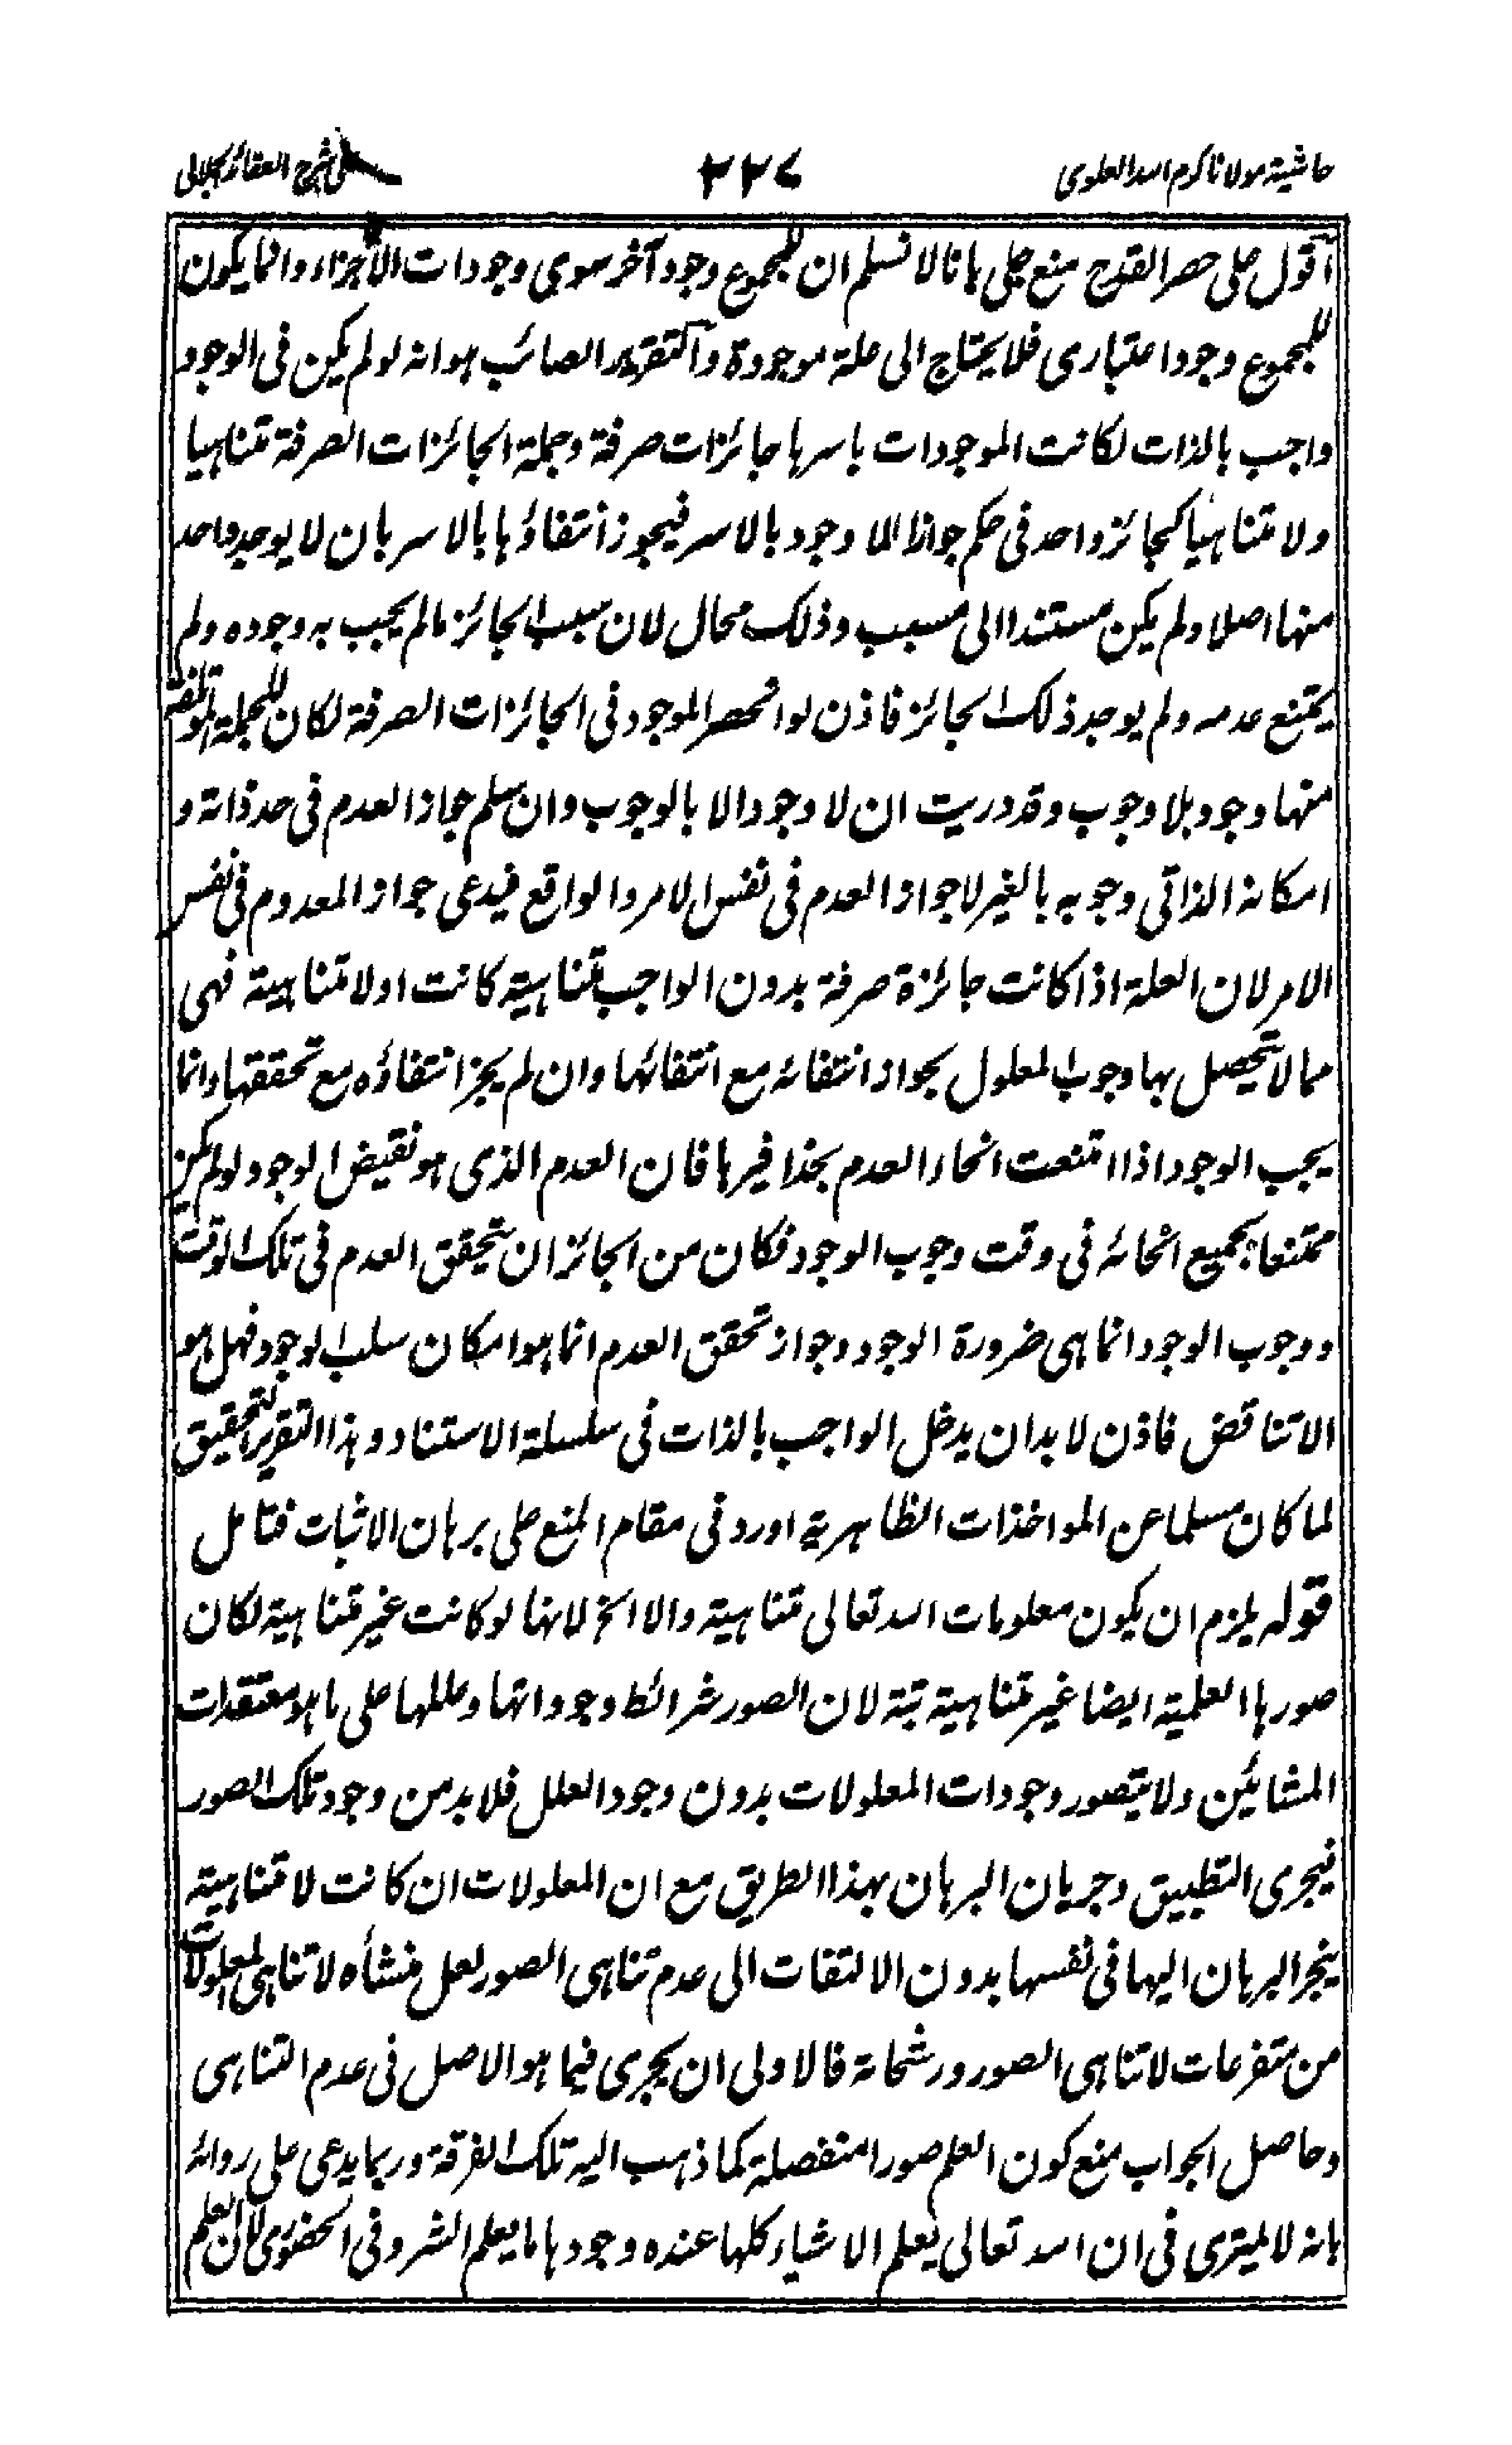 حاشية مولانا كرم الله العلوى ٢٢٧ على شرح العقائد الجلالى
اقول على حصر القدح منع جلى بانا لا نسلم ان للمجموع وجود آخر سوى وجودات الأجزاء وانما يكون
للمجموع وجود اعتبارى فلا يحتاج الى علة موجودة والتقرير الصائب هو انه لو لم يكن فى الوجود
واجب بالذات لكانت الموجودات باسرها جائزات صرفة وجملة الجائزات الصرفة متناهيا
ولا متناهيا كجائز واحد فى حكم جواز اللا وجود بالاسر فيجوز أنتفاؤها بالاسر بان لا يوجد واحد
منها اصلا ولم يكن مستندا الى مسبب وذلك محال لان سبب الجائز ما لم يجب به وجوده ولم
يمتنع عدمه ولم يوجد ذلك الجائز فاذن لو انحصر الموجود فى الجائزات الصرفة لكان للجملة المؤتلفة
منها وجود بلا وجوب وقد دريت ان لا وجود الا بالوجوب وان سلم جواز العدم فى حد ذاته و
امكانه الذاتى وجوبه بالغير لا جواز العدم فى نفس الامر والواقع فيدعى جواز المعدوم فى نفس
الامر لان العلة اذا كانت جائزة صرفة بدون الواجب متناهية كانت او لا متناهية فهى
مما لا يتحصل بها وجوب المعلول بجواز انتفائه مع انتفائها وان لم يجز انتفاؤه مع تحققها وانما
يجب الوجود اذا امتنعت انحاء العدم بحذافيرها فان العدم الذى هو نقيض الوجود لو لم يكن
ممتنعا بجميع انحائه فى وقت وجوب الوجود فكان من الجائز ان يتحقق العدم فى تلك الوقت
ووجوب الوجود انما هى ضرورة الوجود وجواز تحقق العدم انما هو امكان سلب الوجود فهل هو
الا تناقض فاذن لا بد ان يدخل الواجب بالذات فى سلسلة الاستناد وهذا التقرير التحقيق
لما كان مسلما عن المواخذات الظاهرية اورد فى مقام المنع على برهان الاثبات فتامل
قوله يلزم ان يكون معلومات الله تعالى متناهية والا الخ لانها لو كانت غير متناهية لكان
صورها العلمية ايضا غير متناهية بتة لان الصور شرائط وجوداتها وعللها على ما هو معتقدات
المشائين ولا يتصور وجودات المعلولات بدون وجود العلل فلا بد من وجود تلك الصور
فيجرى التطبيق وجريان البرهان بهذا الطريق مع ان المعلولات ان كانت لا متناهية
ينجر البرهان اليها فى نفسها بدون الالتفات الى عدم تناهى الصور لعل منشأه لا تناهى المعلولات
من متفرعات لا تناهى الصور ورشحاته فالاولى ان يجرى فيما هو الاصل فى عدم التناهى
وحاصل الجواب منع كون العلم صورا منفصلة كما ذهب اليه تلك الفرقة وربما يدعى على روائه
بانه لا يمترى فى ان الله تعالى يعلم الاشياء كلها عنده وجودها ما يعلم الشر وفى الحضورى لان العلم